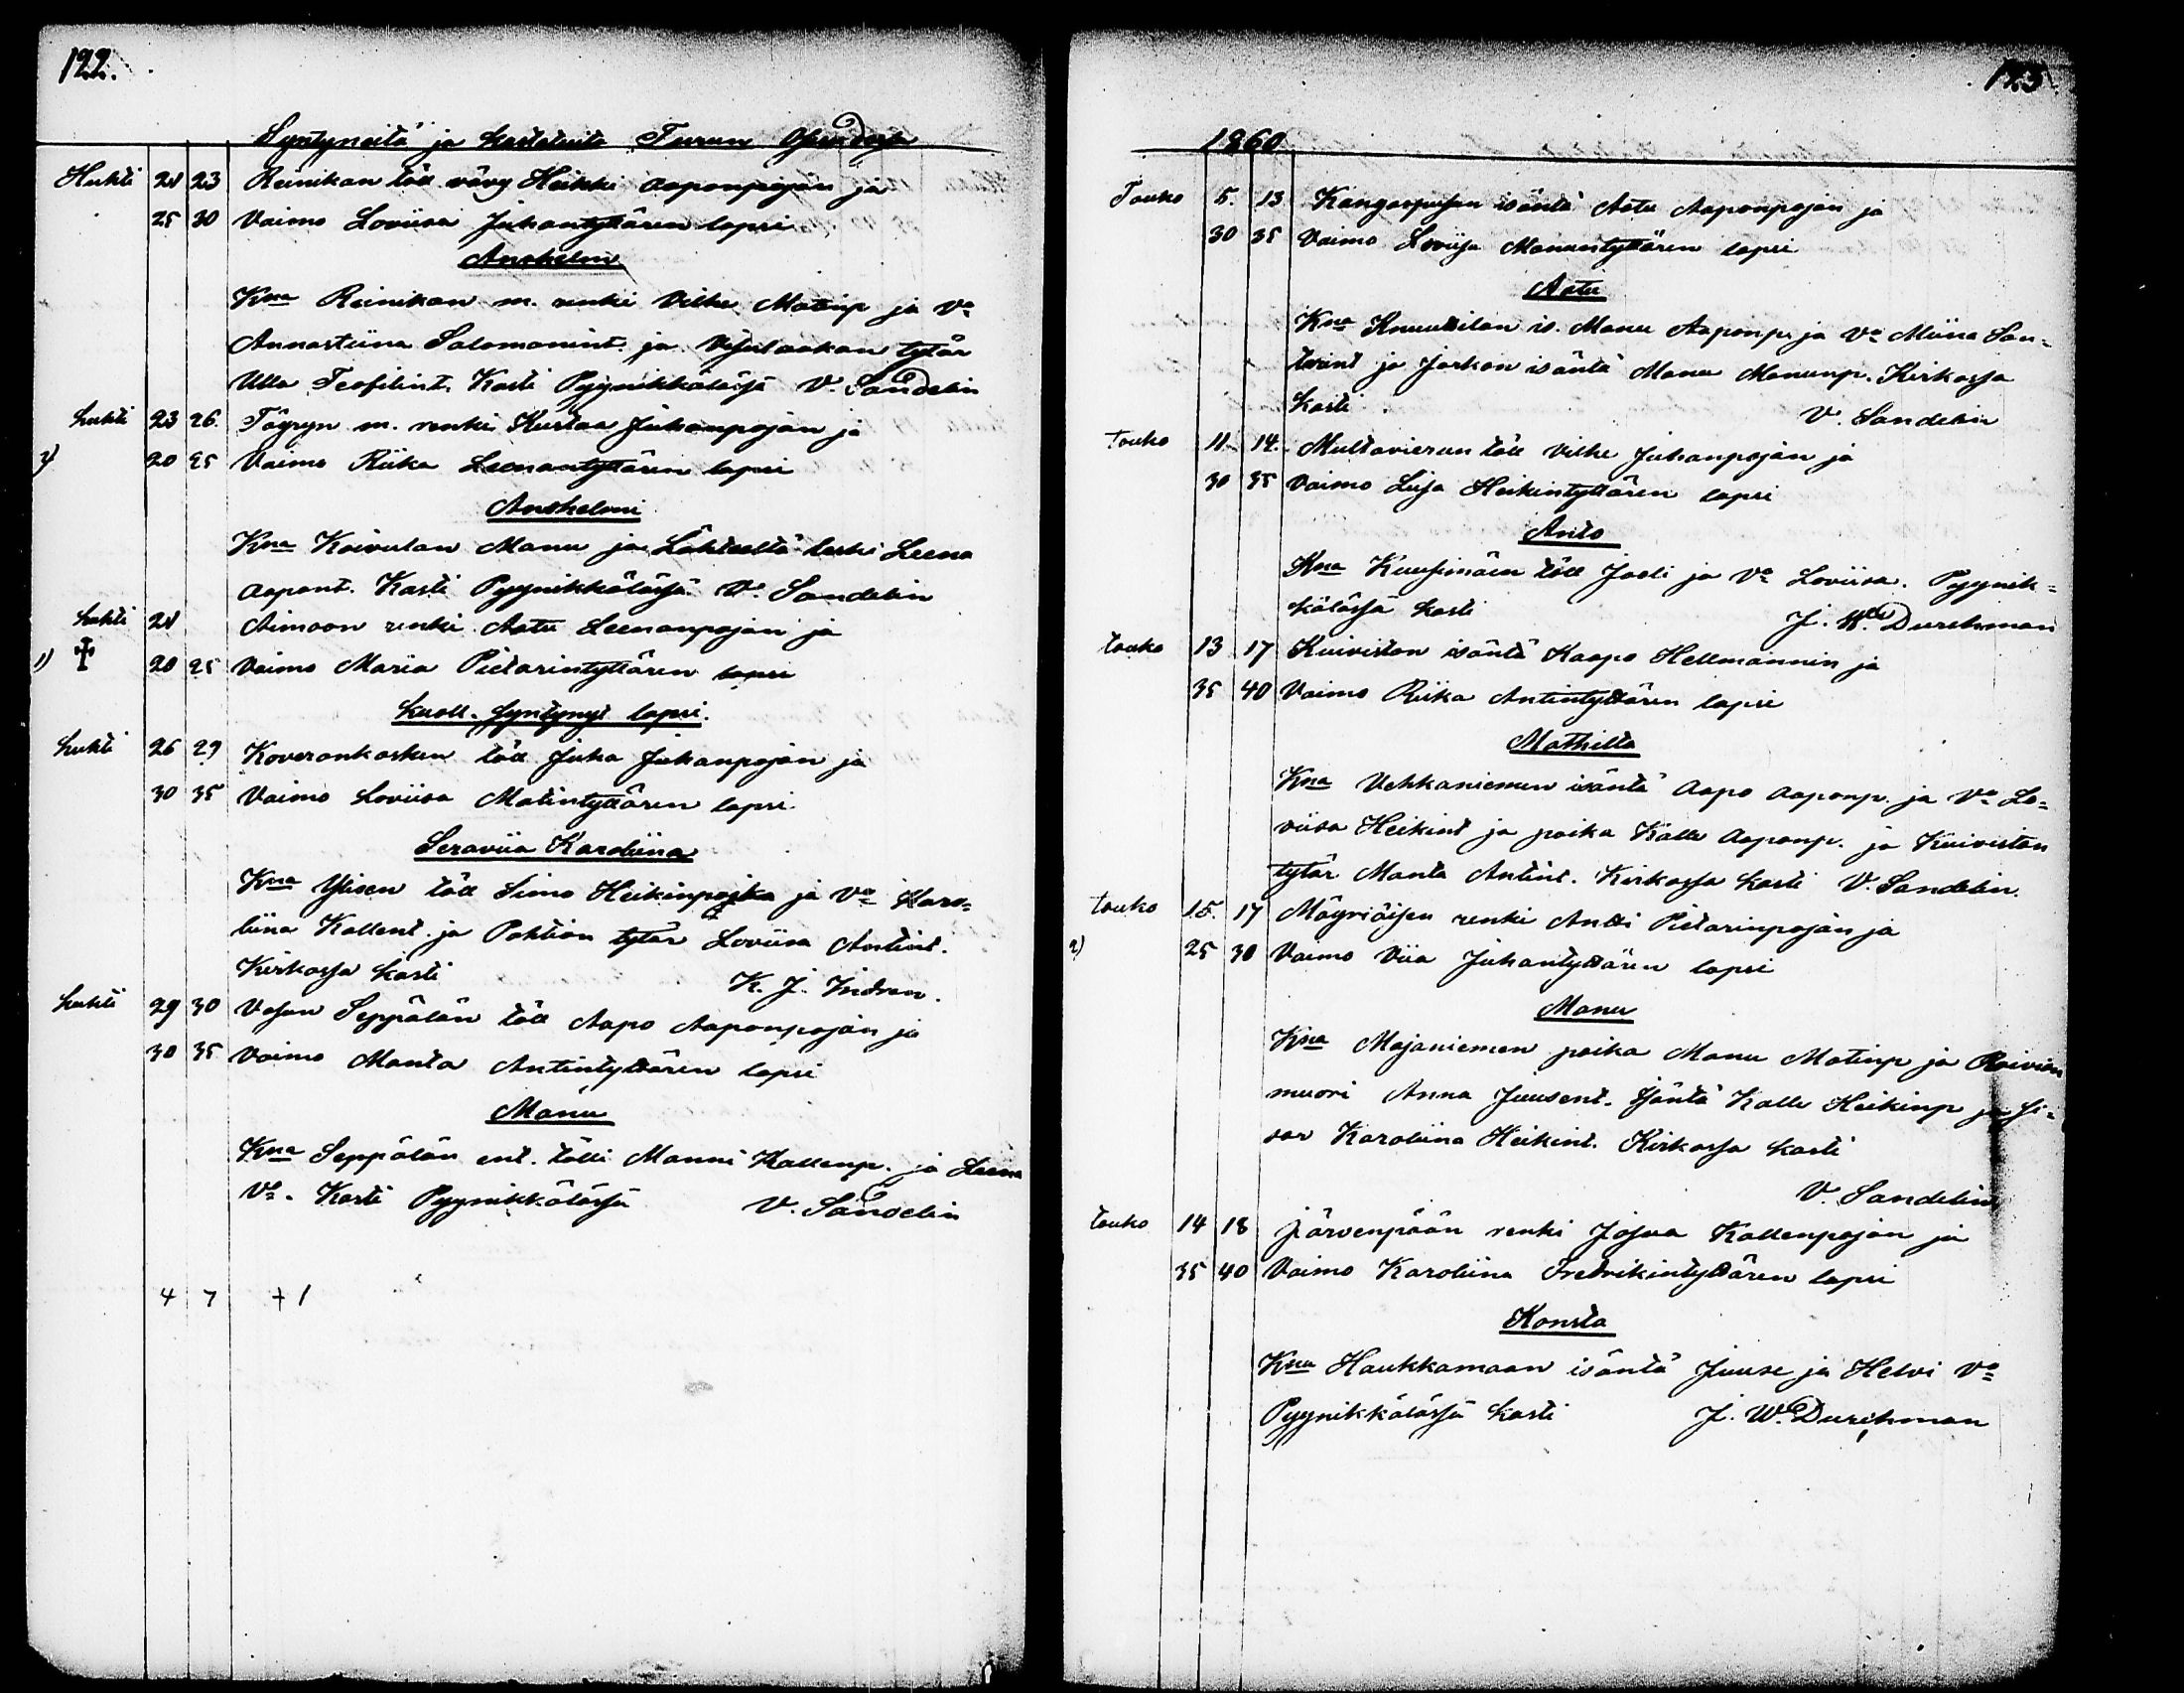 122.
Syntyneitä ja kastetuita Turun
Huhti 21 23 Reinikan töll vävy Heikki Aaponpojan ja
25 30 Vaimo Loviisa Juhantyttären lapsi
Anshelm
Kna Reinikan m. renki Vilhe Matinp ja Va
Annastiina Salomonint. ja tytär
Ulla Teofilint. Kasti Pyynikkälässä V. Sandelin
huhti 23 26. Töyryn m. renki Kustaa Juhanpojan ja
2) 20 25 Vaimo Riika Leenantyttären lapsi
Anshelmi
Kna Koivulan Manu ja Lähteeltä leski Leena
Aapont. Kasti Pyynikkälässä V. Sandelin
huhti 21 Aimoon renki Aatu Leenanpojan ja
1) † 20 25 Vaimo Maria Pietarintyttären lapsi
kuoll. syntynyt lapsi.
huhti 26 29 Koverankosken töll Juha Juhanpojan ja
30 35 Vaimo Loviisa Matintyttären lapsi
Seraviia Karoliina
Kna Ylisen töll Simo Heikinpojka ja Va Karo=
liina Kallent. ja Pohtion tytär Loviisa Antint.
Kirkossa kasti K. J.
huhti 29 30 Seppälän töll Aapo Aaponpojan ja
30 35 Vaimo Manta Antintyttären lapsi
Manu
Kna Seppälän ent. tölli Manni Kallenp. ja Leena
Va. Kasti Pyynikkälässä V. Sandelin
4 7 + 1
123
1860
Touko 5. 13 isäntä Aatu Aaponpojan ja
30 35 Vaimo Loviisa Manuntyttären lapsi
Aatu
Kna Knuutilan is. Manu Aaponp. ja Va Miina San=
terint ja Jarkon isäntä Manu Manunp. Kirkossa
Kasti V. Sandelin
touko 11. 14. Multavierun töll Vilhe Juhanpojan ja
30 35 Vaimo Liisa Heikintyttären lapsi
Anto
Kna Kuusimäen töll Jooli ja Va Loviisa. Pyynik=
kälässä kasti J. W. Durchman
touko 13 17 Kuiviston isäntä Kaapo Hellmannin ja
35 40 Vaimo Riika Antintyttären lapsi
Mathilta
Kna Vehkaniemen isäntä Aapo Aaponp. ja Va Lo=
viisa Heikint ja poika Kalle Aaponp. ja Kuiviston
tytär Manta Antint. Kirkossa kasti V. Sandelin.
touko 15. 17 Mäyriäisen renki Antti Pietarinpojan ja
2) 25 30 Vaimo Viia Juhantyttären lapsi
Manu
Kna Majaniemen poika Manu Matinp ja Raivion
muori Anna Juusent. Isäntä Kalle Heikinp ja si=
sar Karoliina Heikint. Kirkossa kasti
V. Sandelin
touko 14 18 Järvenpään renki Josua Kallenpojan ja
35 40 Vaimo Karoliina Fredrikintyttären lapsi
Konsta
Kna Haukkamaan isäntä Juuse ja Helvi Va
Pyynikkälässä kasti J. W. Durchman